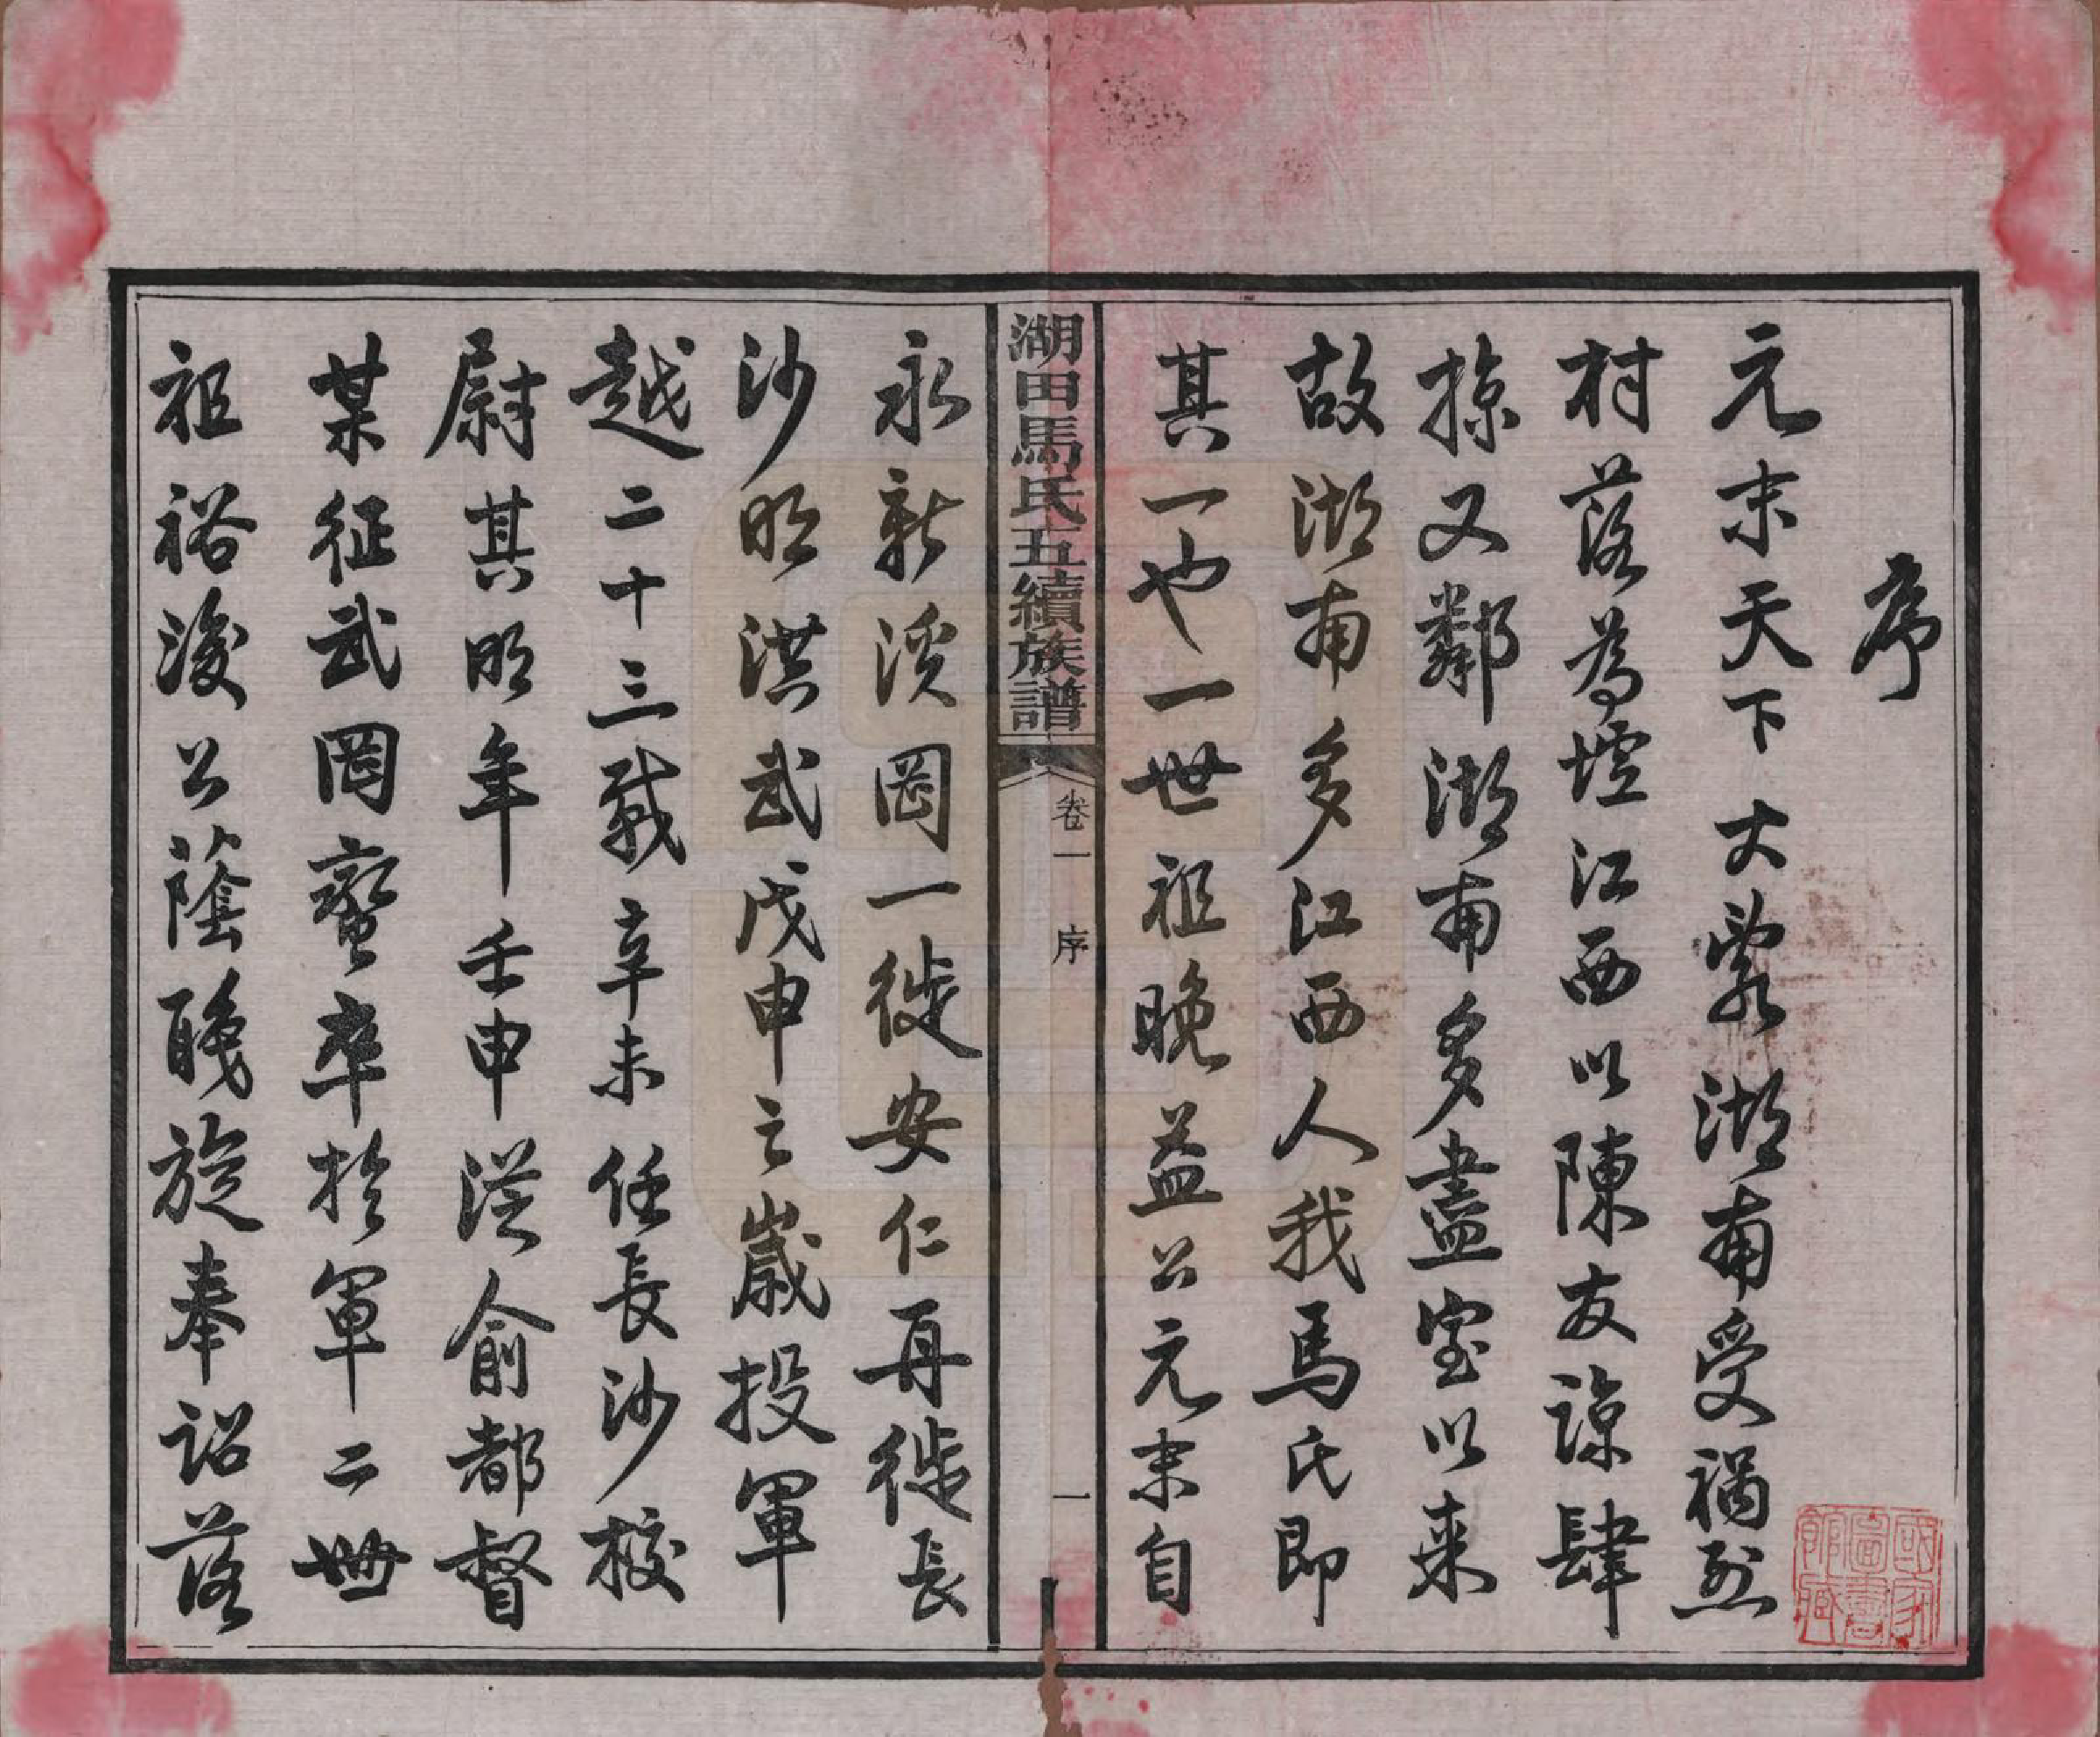 序
元末天下大亂湖南受禍烈
村落為墟江西以陳友諒肆
掠又鄰湖南多盡室以来
故湖南多江西人我馬氏即
其一也一世祖晚益公元末自
湖田馬氏五續族譜
卷一 序 一
永新溪岡一徙安仁再徙長
沙明洪武戊申之歲投軍
越二十三載辛未任長沙校
尉其明年壬申從俞都督
某征武岡蠻卒於軍二世
祖裕浚公蔭職旋奉詔落
國家圖書館藏